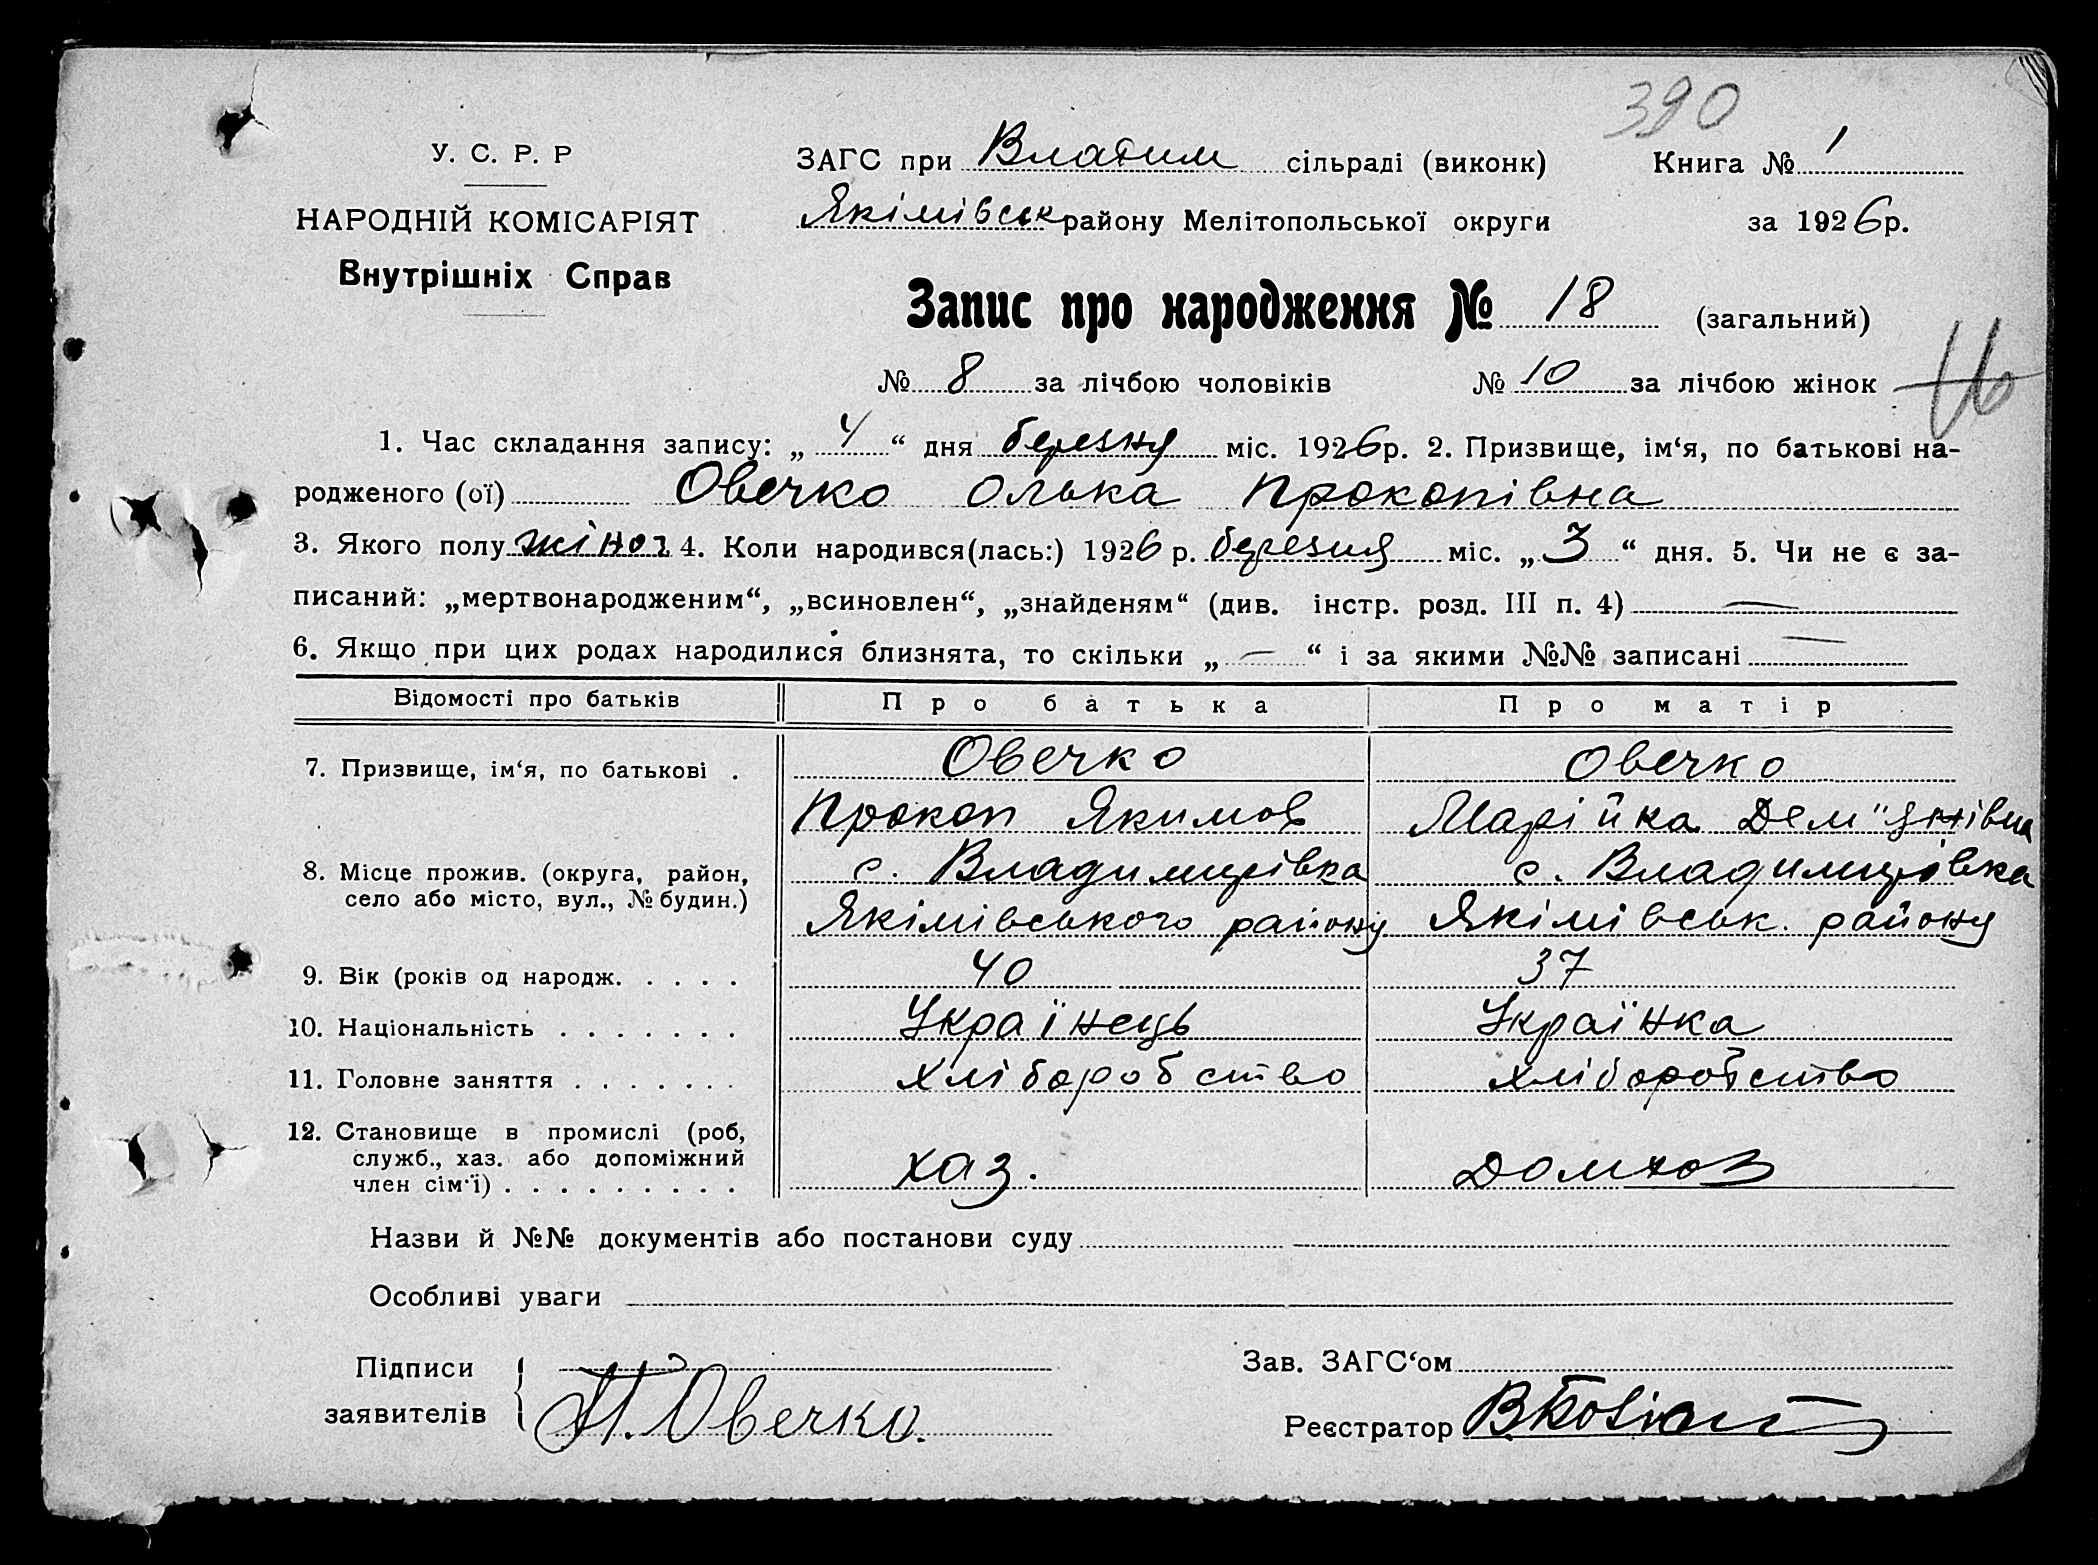 390
У. С. Р. Р
ЗАГС при Владим сільраді (виконк) Книга № 1
НАРОДНІЙ КОМІСАРІЯТ
Якімівськ району Мелітопольської округи за 1926р.
Внутрішніх Справ
Запис про народження № 18 (загальний)
№ 8 за лічбою чоловіків № 10 за лічбою жінок
1. Час складання запису: „ 4 “ дня березну міс. 1926р. 2. Призвище, ім‘я, по батькові на-
родженого (ої) Овечко Олька Прокопівна
3. Якого полу жіноч 4. Коли народився(лась:) 1926 р. березня міс. „ 3 “ дня. 5. Чи не є за-
писаний: „мертвонародженим“, „всиновлен“, „знайденям“ (див. інстр. розд. III п. 4) —
6. Якщо при цих родах народилися близнята, то скільки „ — “ і за якими №№ записані —
Відомості про батьків Про батька Про матір
7. Призвище, ім‘я, по батькові . Овечко Овечко
Прокоп Якимов Марійка Дем"янівна
8. Місце прожив. (округа, район, с. Владимирівка с. Владимирівка
село або місто, вул., № будин.) Якімівського району Якімівськ. району
9. Вік (років од народж. . . . . 40 37
10. Національність . . . . . . . Українець Українка
11. Головне заняття . . . . . . . хліборобство хліборобство
12. Становище в промислі (роб,
служб., хаз. або допоміжний
член сім‘ї) . . . . . . . . . хаз. домхоз
Назви й №№ документів або постанови суду
Особливі уваги
Підписи Зав. ЗАГС‘ом
заявителів П. Овечко. Реєстратор